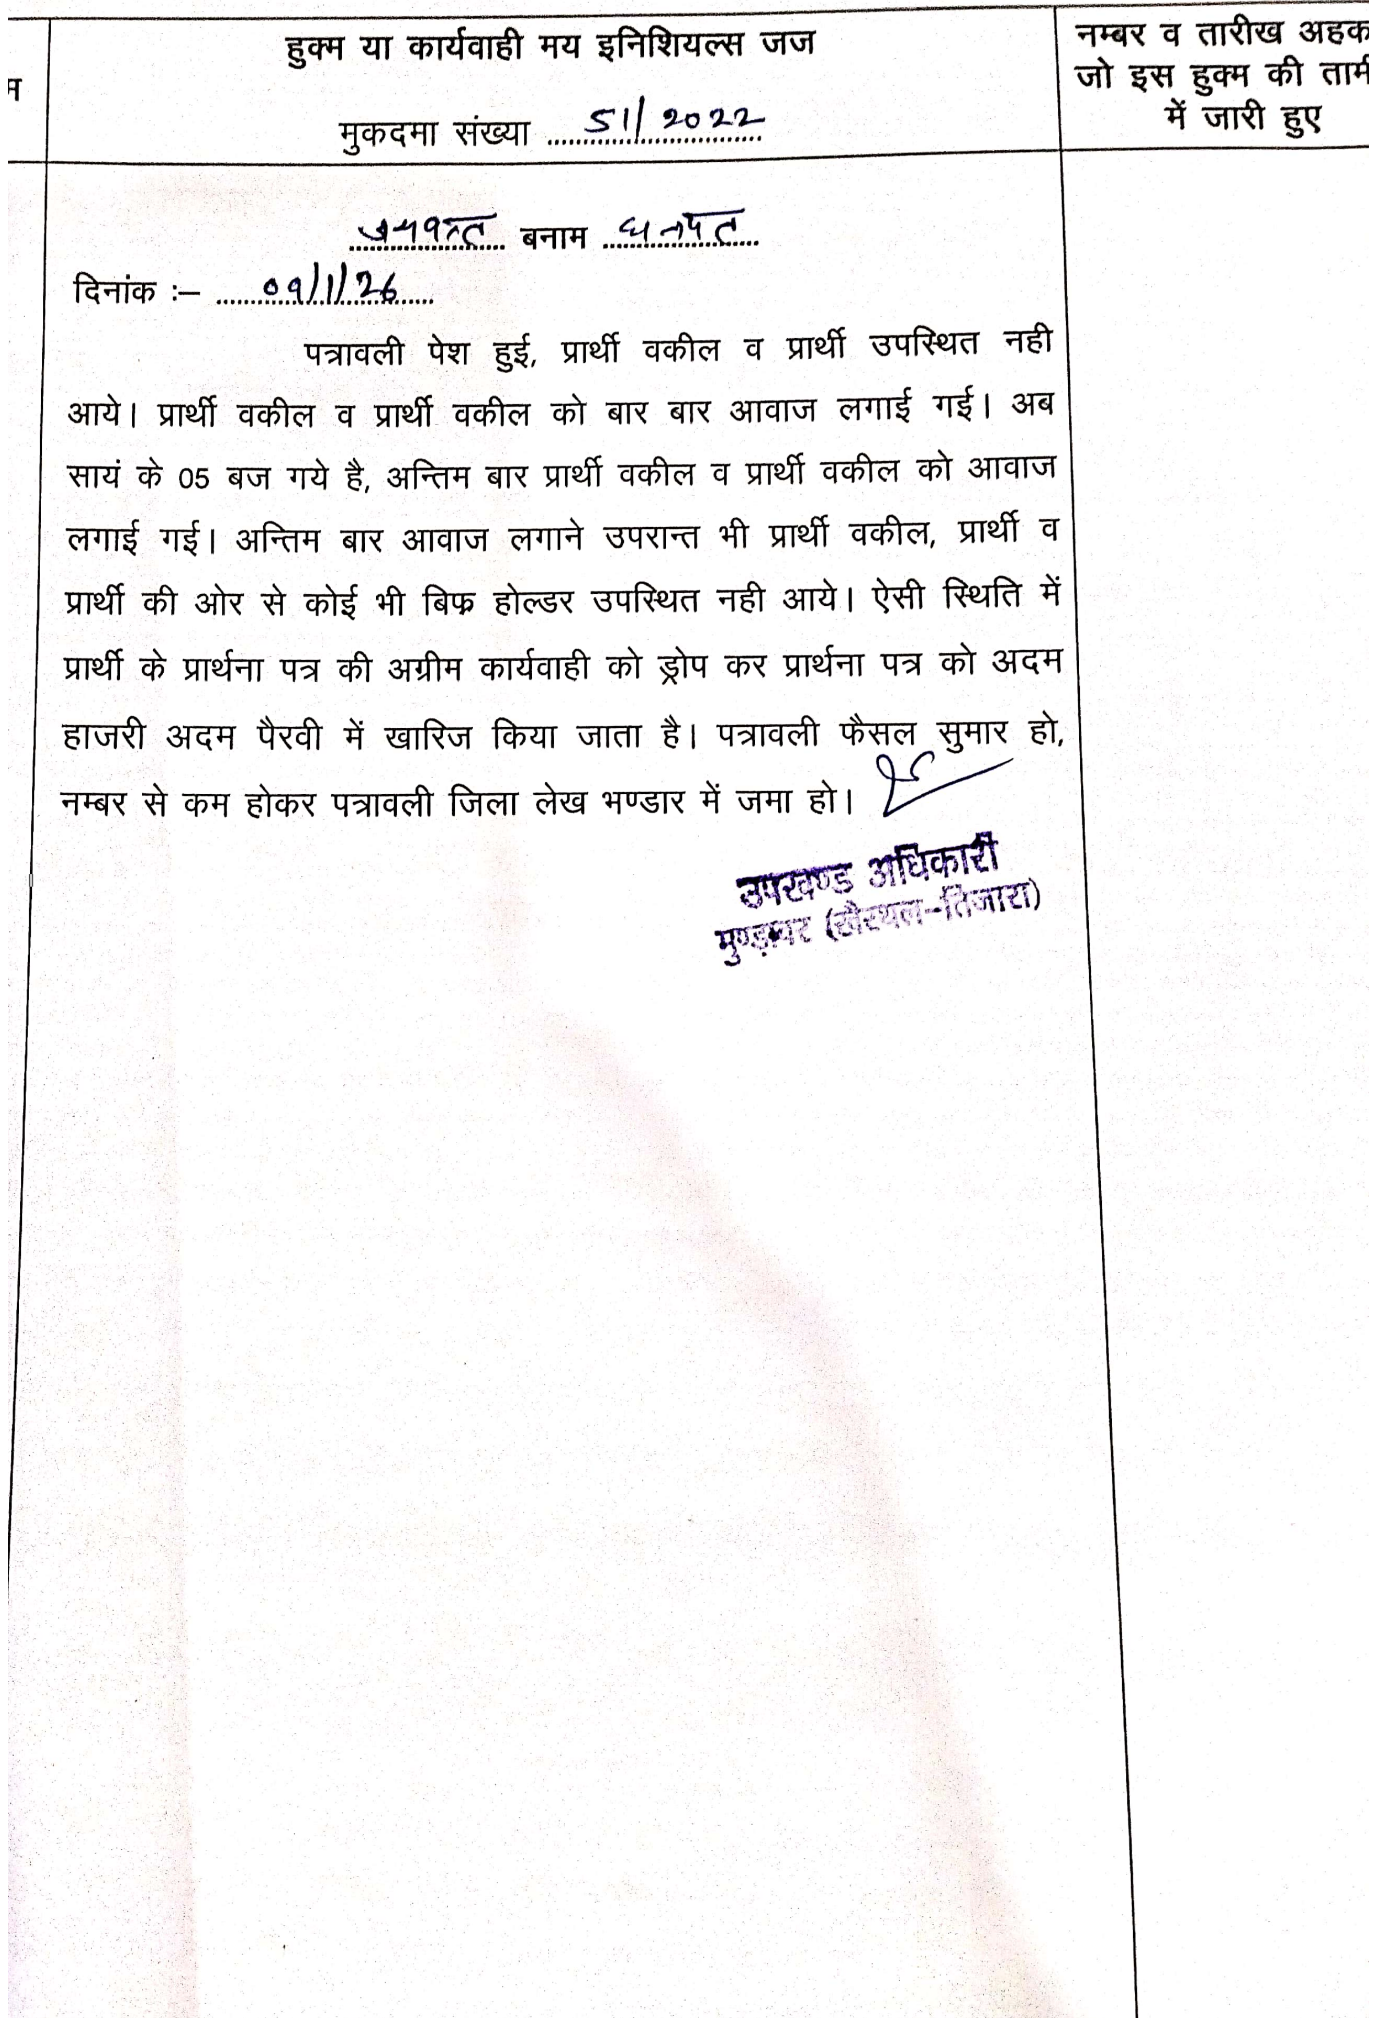 म
हुक्म या कार्यवाही मय इनिशियल्स जज
मुकदमा संख्या 51/2022
नम्बर व तारीख अहक
जो इस हुक्म की तामी
में जारी हुए
बनाम धनपत
दिनांक :– 09/1/26
पत्रावली पेश हुई, प्रार्थी वकील व प्रार्थी उपस्थित नही
आये। प्रार्थी वकील व प्रार्थी वकील को बार बार आवाज लगाई गई। अब
सायं के 05 बज गये है, अन्तिम बार प्रार्थी वकील व प्रार्थी वकील को आवाज
लगाई गई। अन्तिम बार आवाज लगाने उपरान्त भी प्रार्थी वकील, प्रार्थी व
प्रार्थी की ओर से कोई भी बिफ्र होल्डर उपस्थित नही आये। ऐसी स्थिति में
प्रार्थी के प्रार्थना पत्र की अग्रीम कार्यवाही को ड्रोप कर प्रार्थना पत्र को अदम
हाजरी अदम पैरवी में खारिज किया जाता है। पत्रावली फैसल सुमार हो,
नम्बर से कम होकर पत्रावली जिला लेख भण्डार में जमा हो।
उपखण्ड अधिकारी
मुण्ड़ावर (खैरथल–तिजारा)